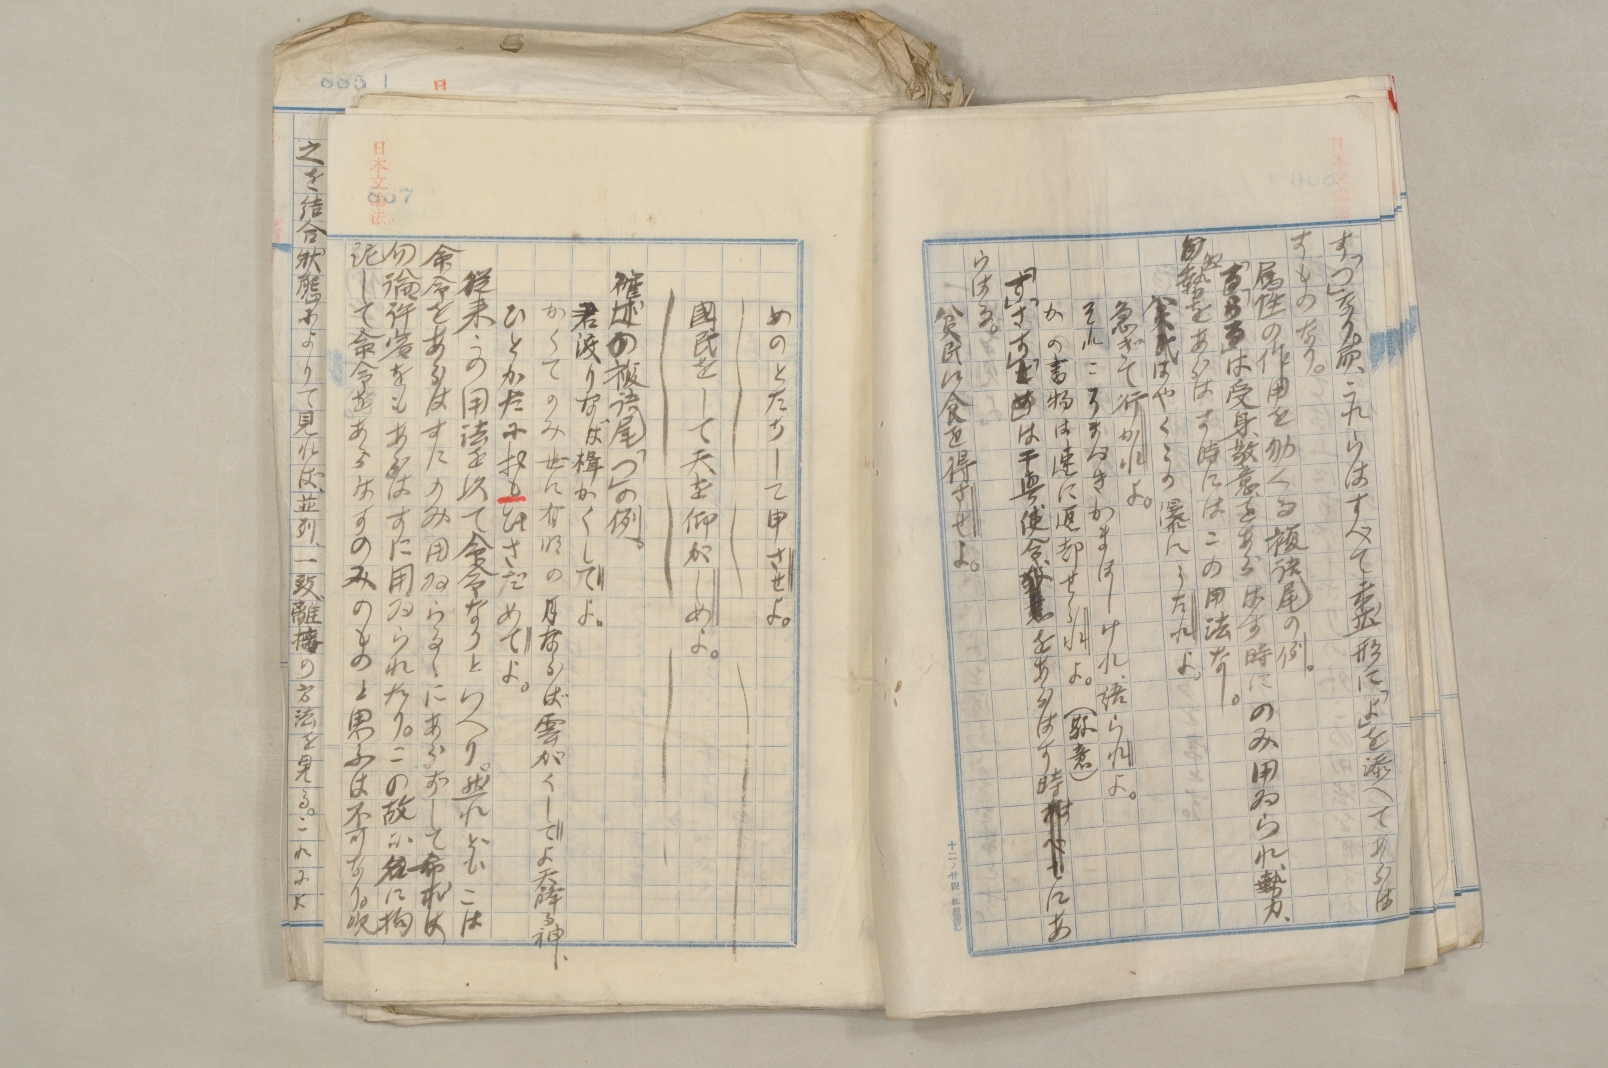 す「つ」なり。而、これらはすべて希望形に「よ」を添へてあらは
すものなり。
属性の作用を助くる複語尾の例。
「る」「らる」は受身、敬意をあらはす時にのみ用ゐられ、勢力、
自然勢をあらはす時にはこの用法なし。
はやくこの瀑にうたれよ。
急ぎて行かれよ。
それこそきかまほしけれ、語られよ。
かの書物は速に返却せられよ。(敬意)
「す」「さす」「しむ」は干與使令をあらはす時にあ
らはる。
公民に食を得させよ。
めのとたちして申させよ。
國民をして天を仰がしめよ。
確述の複語尾「つ」の例。
君渡りなば楫かくしてよ。
かくてのみ世に有明の月ならば雲かくしてよ天降る神、
ひとかたにおもひさだめてよ。
従来この用法を以て命令なりといへり。然れどもこは
命令をあらはすにのみ用ゐらるゝにあらずして希求は
勿論許容をもあらはすに用ゐられたり。この故に名に拘
泥して命令をあらはすのみのものと思ふは不可なり。次
之を結合状態によりて見れば、並列、一致、離接の方法を見る。これによ
日本文法
667
665